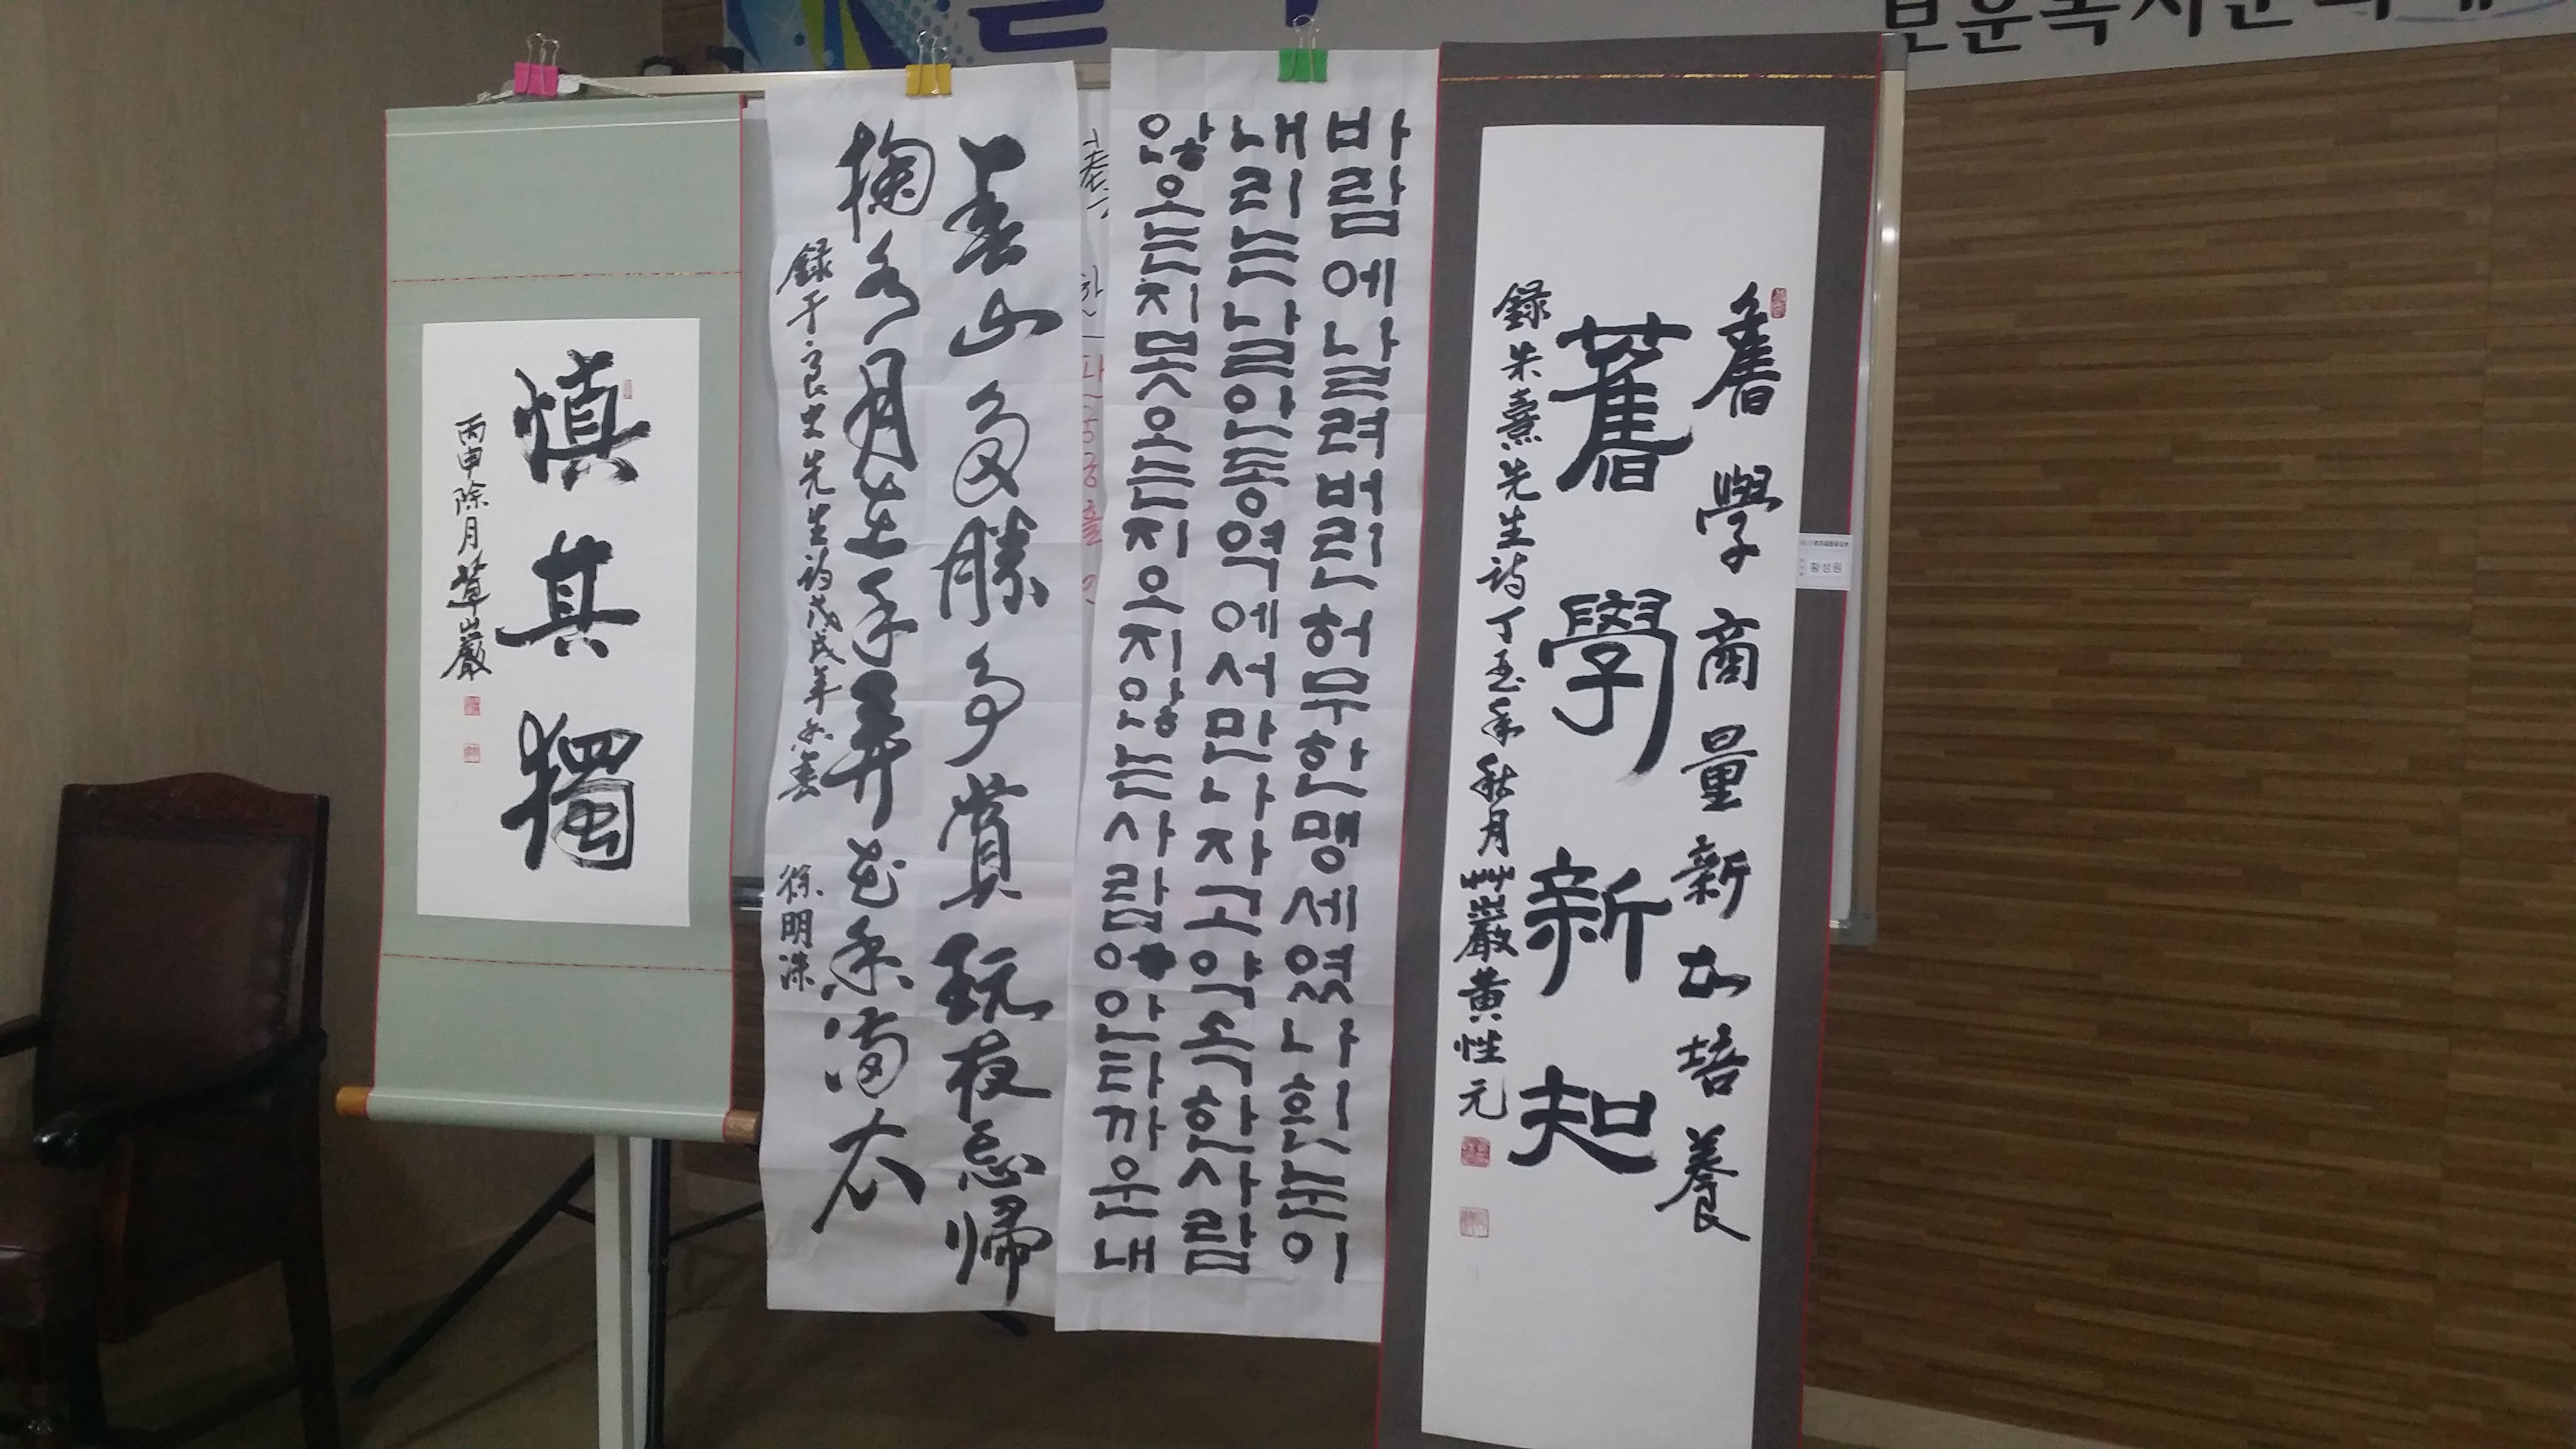 慎其獨
丙申除月草巖
春山多勝事賞玩夜忘歸
掬水月在手弄花香滿衣
錄于良史先生詩戊戌年
徐明洙
바람에날려버린허무한맹세였나흰눈이
내리는날안동역에서만나자고약속한사람
않오는지못오는지오지않는사람아안타까운내
舊學商量新加培養
舊學新知
錄朱熹先生詩丁酉年秋月艸巖黃性元
황성원